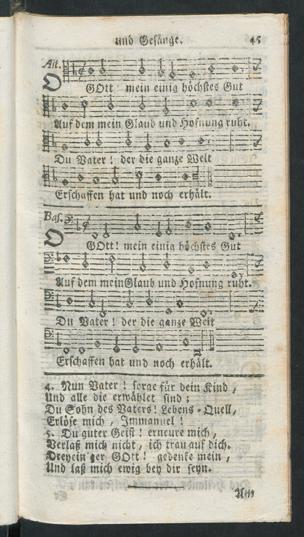 und Gesänge. 45
Alt.
O GOtt mein einig höchstes Gut
Auf dem mein Glaub und Hofnung ruht.
Du Vater! der die ganze Welt
Erschaffen hat und noch erhält.
Baß.
O GOtt! mein einig höchstes Gut
Auf dem mein Glaub und Hofnung ruht.
Du Vater! der die ganze Welt
Erschaffen hat und noch erhält.
4. Nun Vater! sorge für dein Kind,
Und alle die erwählet sind;
Du Sohn des Vaters! Lebens-Quell,
Erlöse mich, Immanuel!
5. Du guter Geist! erneure mich,
Verlaß mich nicht, ich trau auf dich.
Dreyein'ger GOtt! gedenke mein,
Und laß mich ewig bey dir seyn.